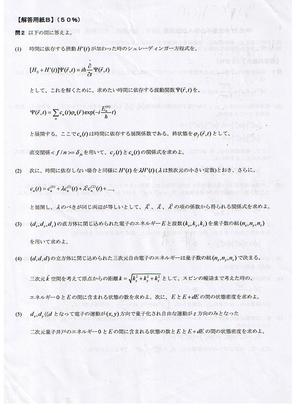 【解答用紙B】(50%)
問2 以下の問に答えよ。
(1) 時間に依存する摂動 H'(t) が加わった時のシュレーディンガー方程式を、
[H₀ + H'(t)]Ψ(r,t) = iħ ∂/∂t Ψ(r,t)
として、これを解くために、求めたい時間に依存する波動関数 Ψ(r,t) を、
Ψ(r,t) = Σ cₙ(t)φₙ(r)exp(-i Eₙ⁽⁰⁾/ħ t)
と展開する。ここで cₙ(t) は時間に依存する展開係数である。終状態を φ_f(r,t) として、
直交関係 < f | n > = δ_fn を用いて、c_f(t) と cₙ(t) の関係式を求めよ。
(2) 次に、時間に依存しない場合と同様に H'(t) を λH'(t) (λは無次元の小さい定数) とおき、さらに、
cₙ(t) = cₙ⁽⁰⁾(t) + λcₙ⁽¹⁾(t) + λ²cₙ⁽²⁾ + ...,
と展開し、λのべきが同じ両辺が等しいとして、λ⁰、λ¹、λ² の項の係数から得られる関係式を求めよ。
(3) の直方体に閉じ込められた電子のエネルギー E と波数 (kₓ,k_y,k_z) を量子数の組 (n₁,n₂,n₃)
を用いて求めよ。
(4) の立方体に閉じ込められた三次元自由電子のエネルギーは量子数の組 (n₁,n₂,n₃) で決まる。
三次元 k 空間を考えて原点からの距離 k = √(kₓ² + k_y² + k_z²) として、スピンの縮重まで考えた時の、
エネルギー0と E の間に含まれる状態の数を求めよ。次に、E と E + dE の間の状態密度を求めよ。
(5) となって電子の運動が (x,y) 方向で量子化され自由な運動が z 方向のみとなった
二次元量子井戸のエネルギー0と E の間に含まれる状態の数と E と E + dE の間の状態密度を求めよ。